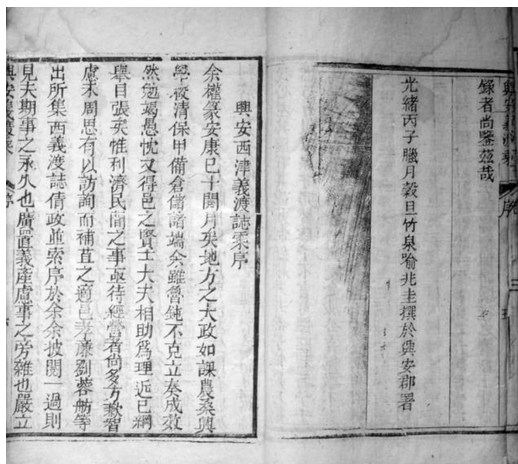 錄者尚鑒玆哉
光緒丙子臘月穀旦竹泉喻兆圭撰於興安郡署
興安西津義渡誌乘序
余權篆安康已十閱月矣地方之大政如課農桑興
學校清保甲備倉儲諸端余雖魯鈍不克立奏成效
然勉竭愚忱又得邑之賢士大夫相助為理近已綱
舉目張矣惟利濟民間之事亟待經營者尚多方歉智
慮未周思有以訪詢而補苴之適邑孝廉劉蓉舫等
出所集西義渡誌倩政並索序於余余披閱一過則
見夫期事之永久也廣置義產慮事之旁雜也嚴立